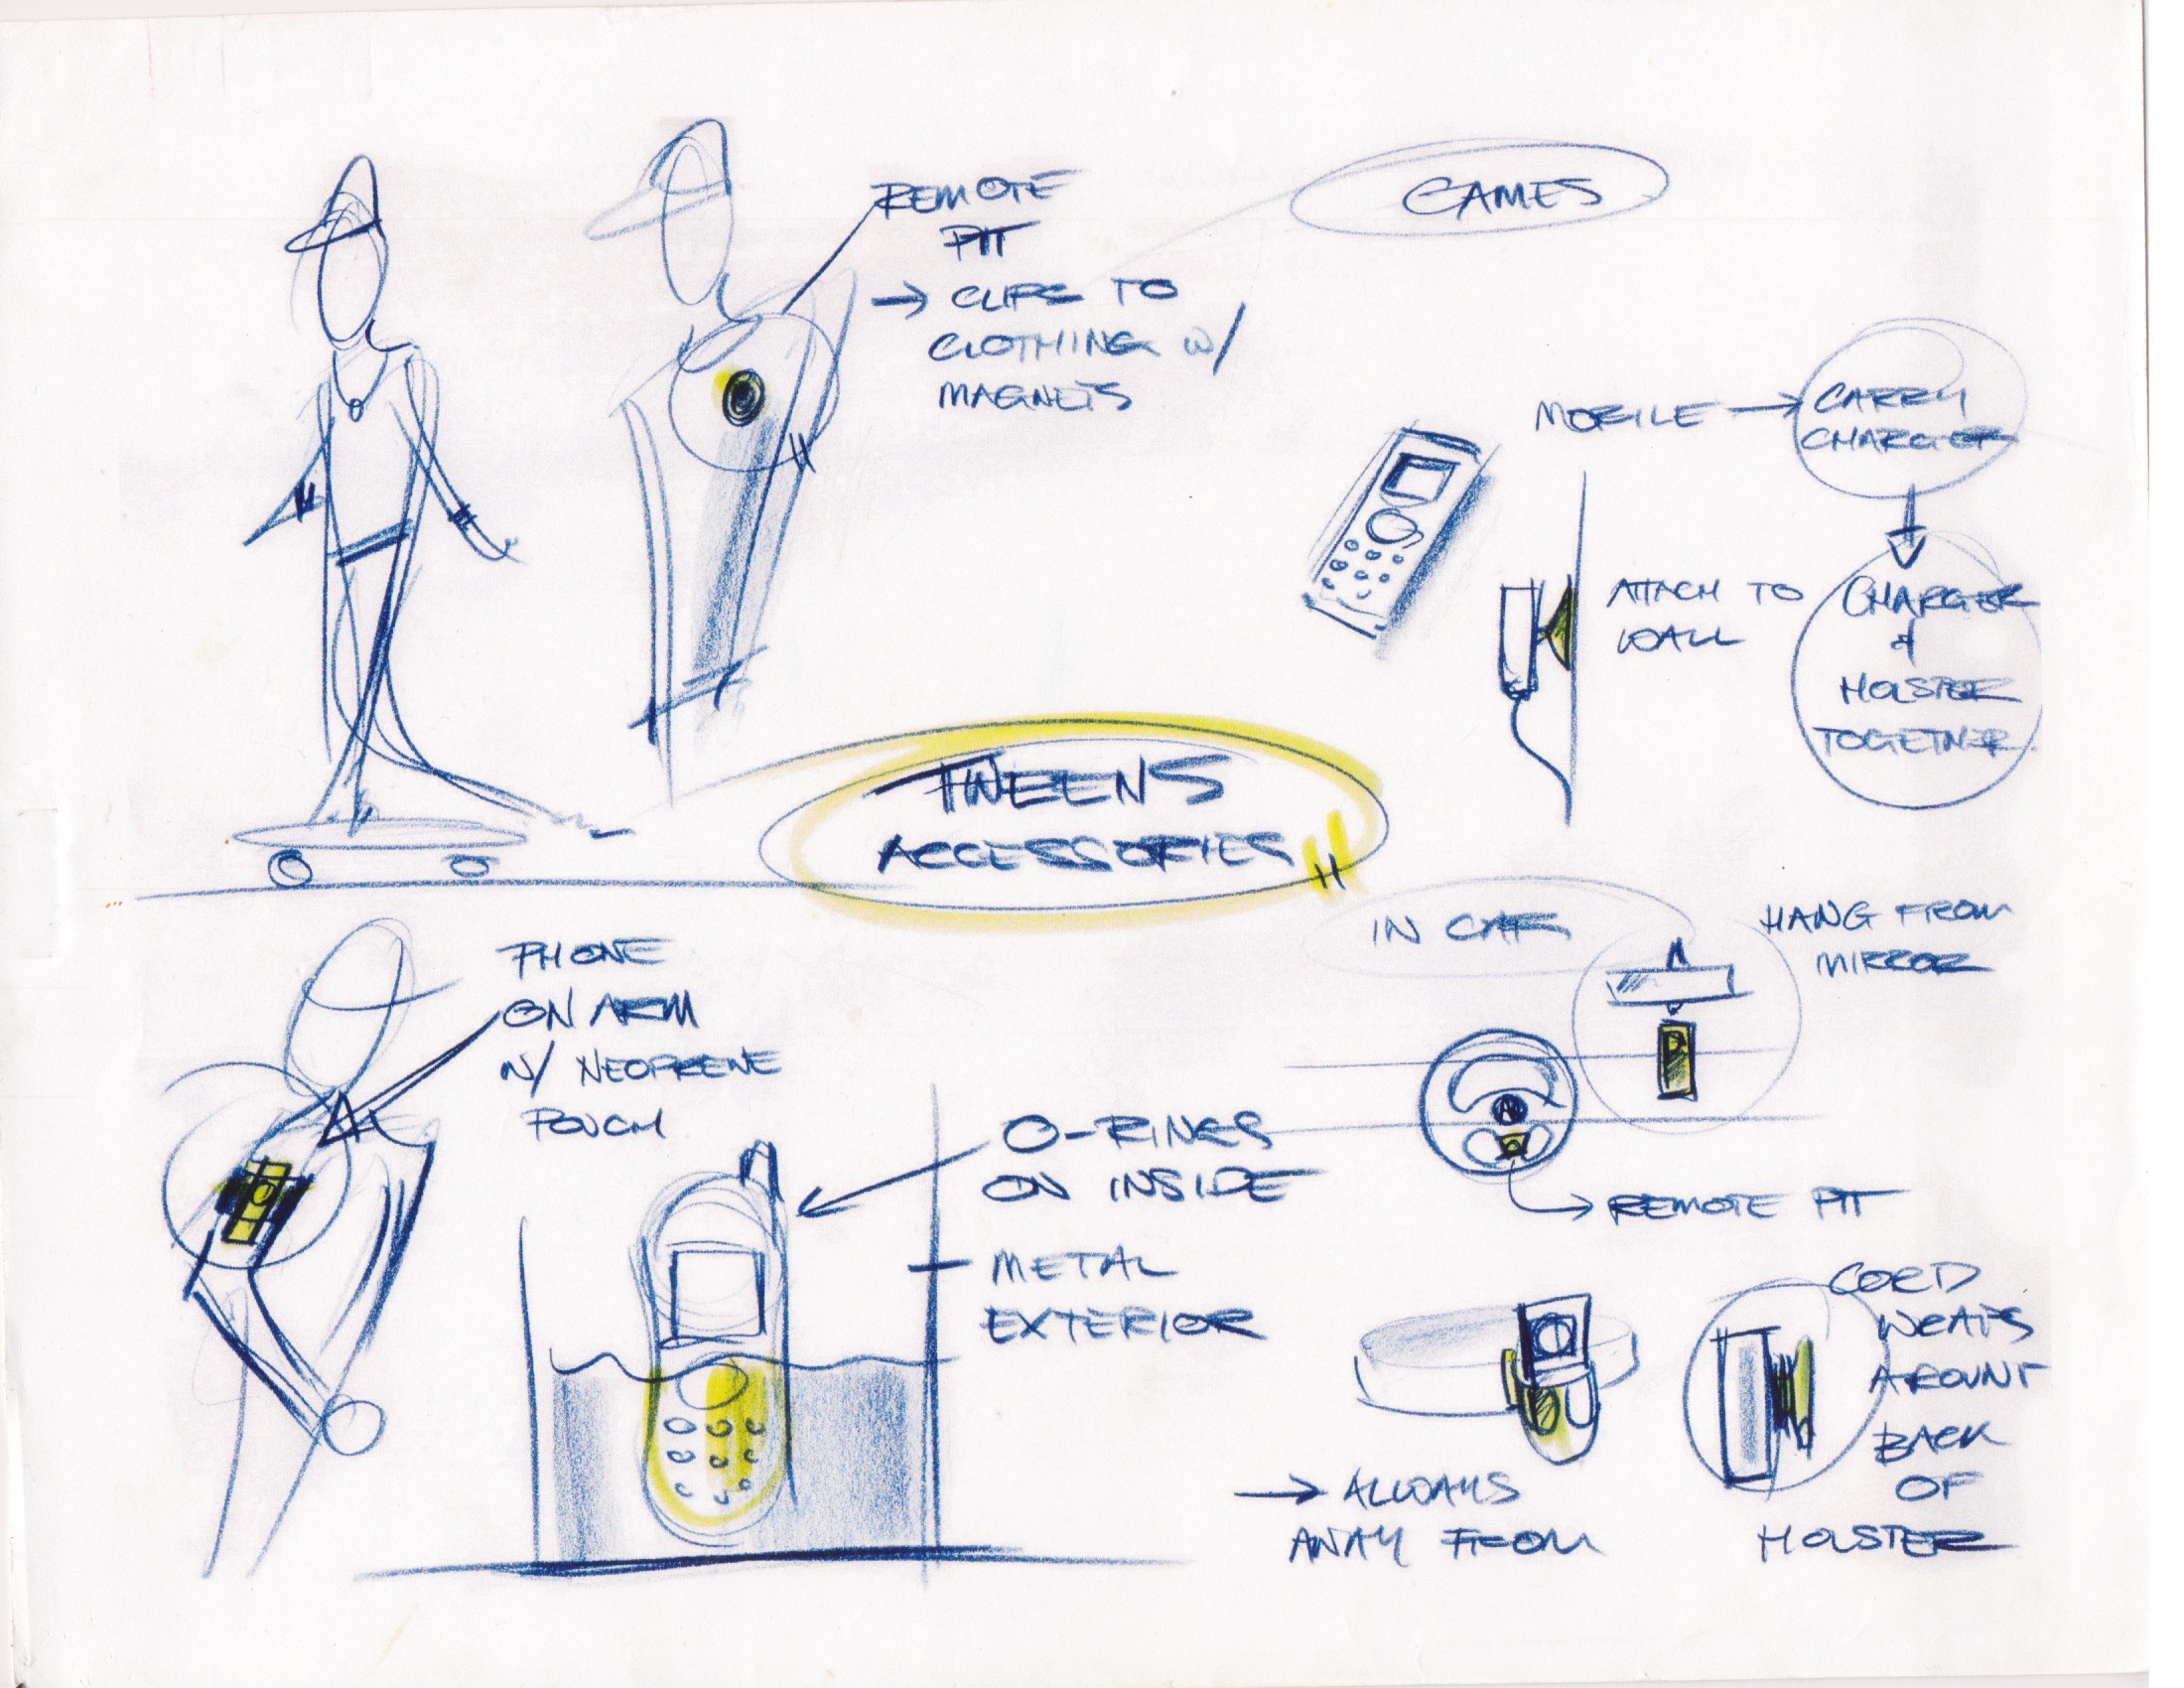 REMOTE
PTT
→ CLIPS TO
CLOTHING W/
MAGNETS
GAMES
MOBILE → CARRY
CHARGER
ATTACH TO
WALL
CHARGER
&
HOLSTER
TOGETHER
TWEENS
ACCESSORIES
IN CAR
HANG FROM
MIRROR
REMOTE PTT
PHONE
ON ARM
W/ NEOPRENE
POUCH
O-RINGS
ON INSIDE
METAL
EXTERIOR
→ ALWAYS
AWAY FROM
CORD
WRAPS
AROUNT
BACK
OF
HOLSTER